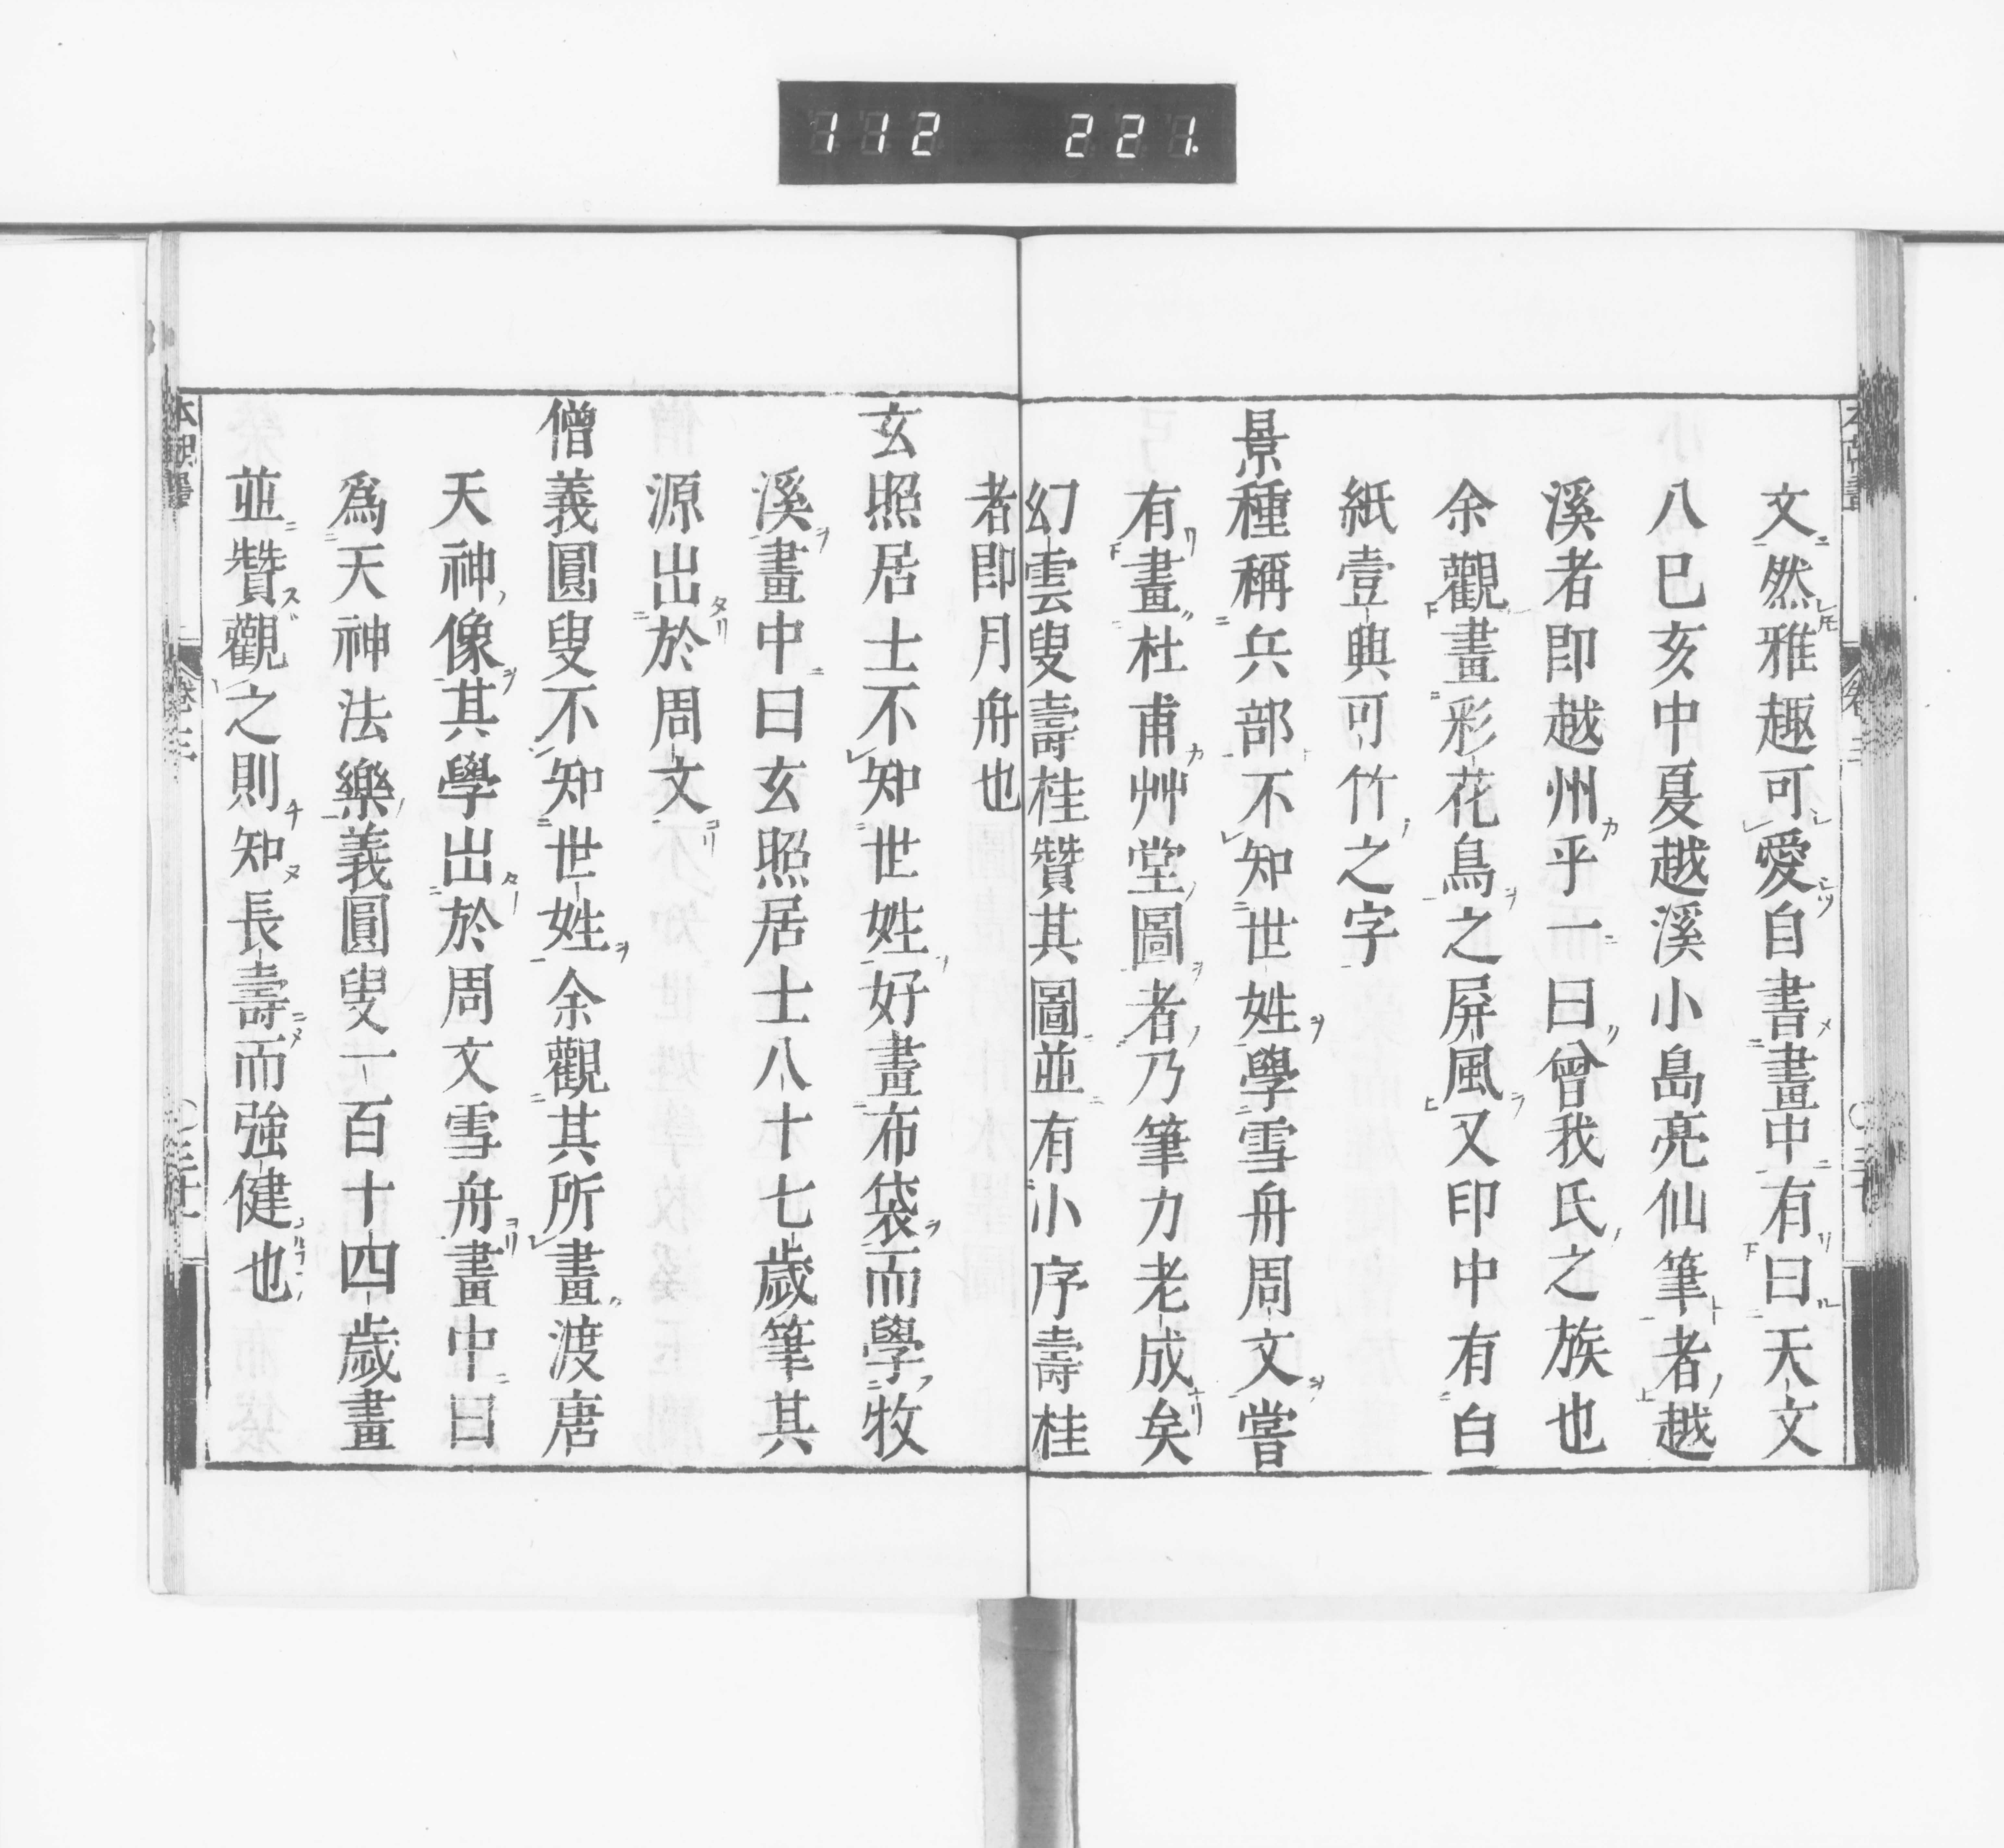 112 221.
文然雅趣可愛自書畫中有曰天文
八巳亥中夏越溪小島亮仙筆者越
溪者即越州乎一曰曾我氏之族也
余觀畫彩花鳥之屏風又印中有白
紙壹與可竹之字
景種稱兵部不知世姓學雪舟周文嘗
有畫杜甫艸堂圖者乃筆力老成矣
幻雲叟壽桂贊其圖並有小序壽桂
者即月舟也
玄照居士不知世姓好畫布袋而學牧
溪畫中曰玄照居士八十七歲筆其
源出於周文
僧義圓叟不知世姓余觀其所畫渡唐
天神像其學出於周文雪舟畫中曰
爲天神法樂義圓叟一百十四歲畫
並贊觀之則知長壽而強健也